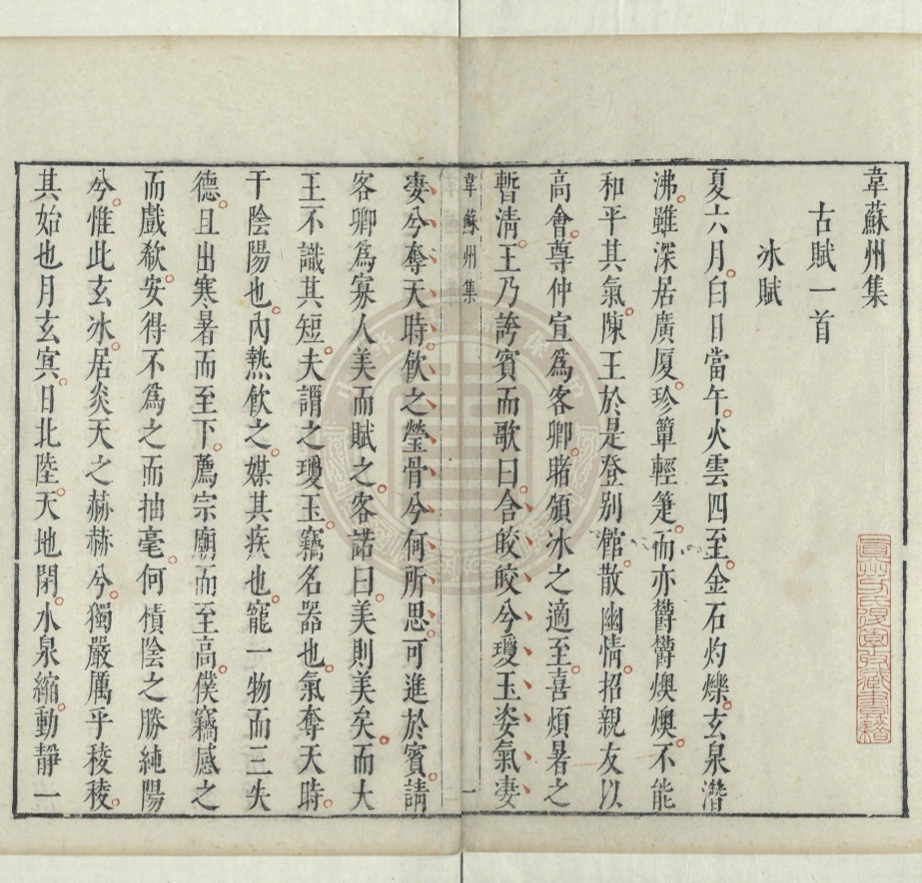 韋蘇州集
古賦一首
冰賦
夏六月。白日當午。火雲四至。金石灼爍。玄泉潛
沸。雖深居廣厦。珍簟輕箑。而亦鬱鬱燠燠。不能
和平其氣。陳王於是登别館。散幽情。招親友以
高會。尊仲宣爲客卿。睹頒冰之適至。喜煩暑之
暫清。王乃誇賓而歌曰。含皎皎兮瓊玉姿。氣凄
韋蘇州集
一
凄兮奪天時。飲之瑩骨兮何所思。可進於賓。請
客卿爲寡人美而賦之。客諾曰。美則美矣。而大
王不識其短。夫謂之瓊玉。竊名器也。氣奪天時。
干陰陽也。内熱飲之。媒其疾也。寵一物而三失
德。且出寒暑而至下。薦宗廟而至高。僕竊感之
而戲欷。安得不爲之而抽毫。何積陰之勝純陽
兮。惟此玄冰。居炎天之赫赫兮。獨嚴厲乎稜稜。
其始也月玄冥。日北陸。天地閉。水泉縮。動靜一